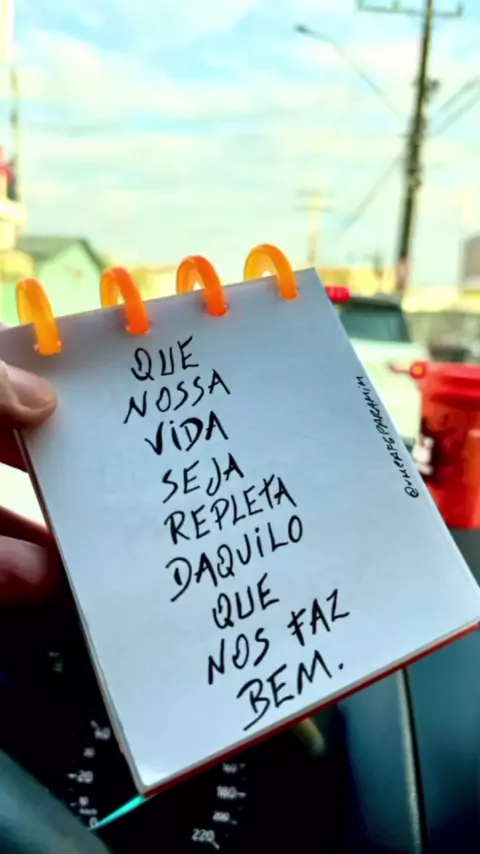 QUE
NOSSA
VIDA
SEJA
REPLETA
DAQUILO
QUE
NOS FAZ
BEM.
20
0
180
220